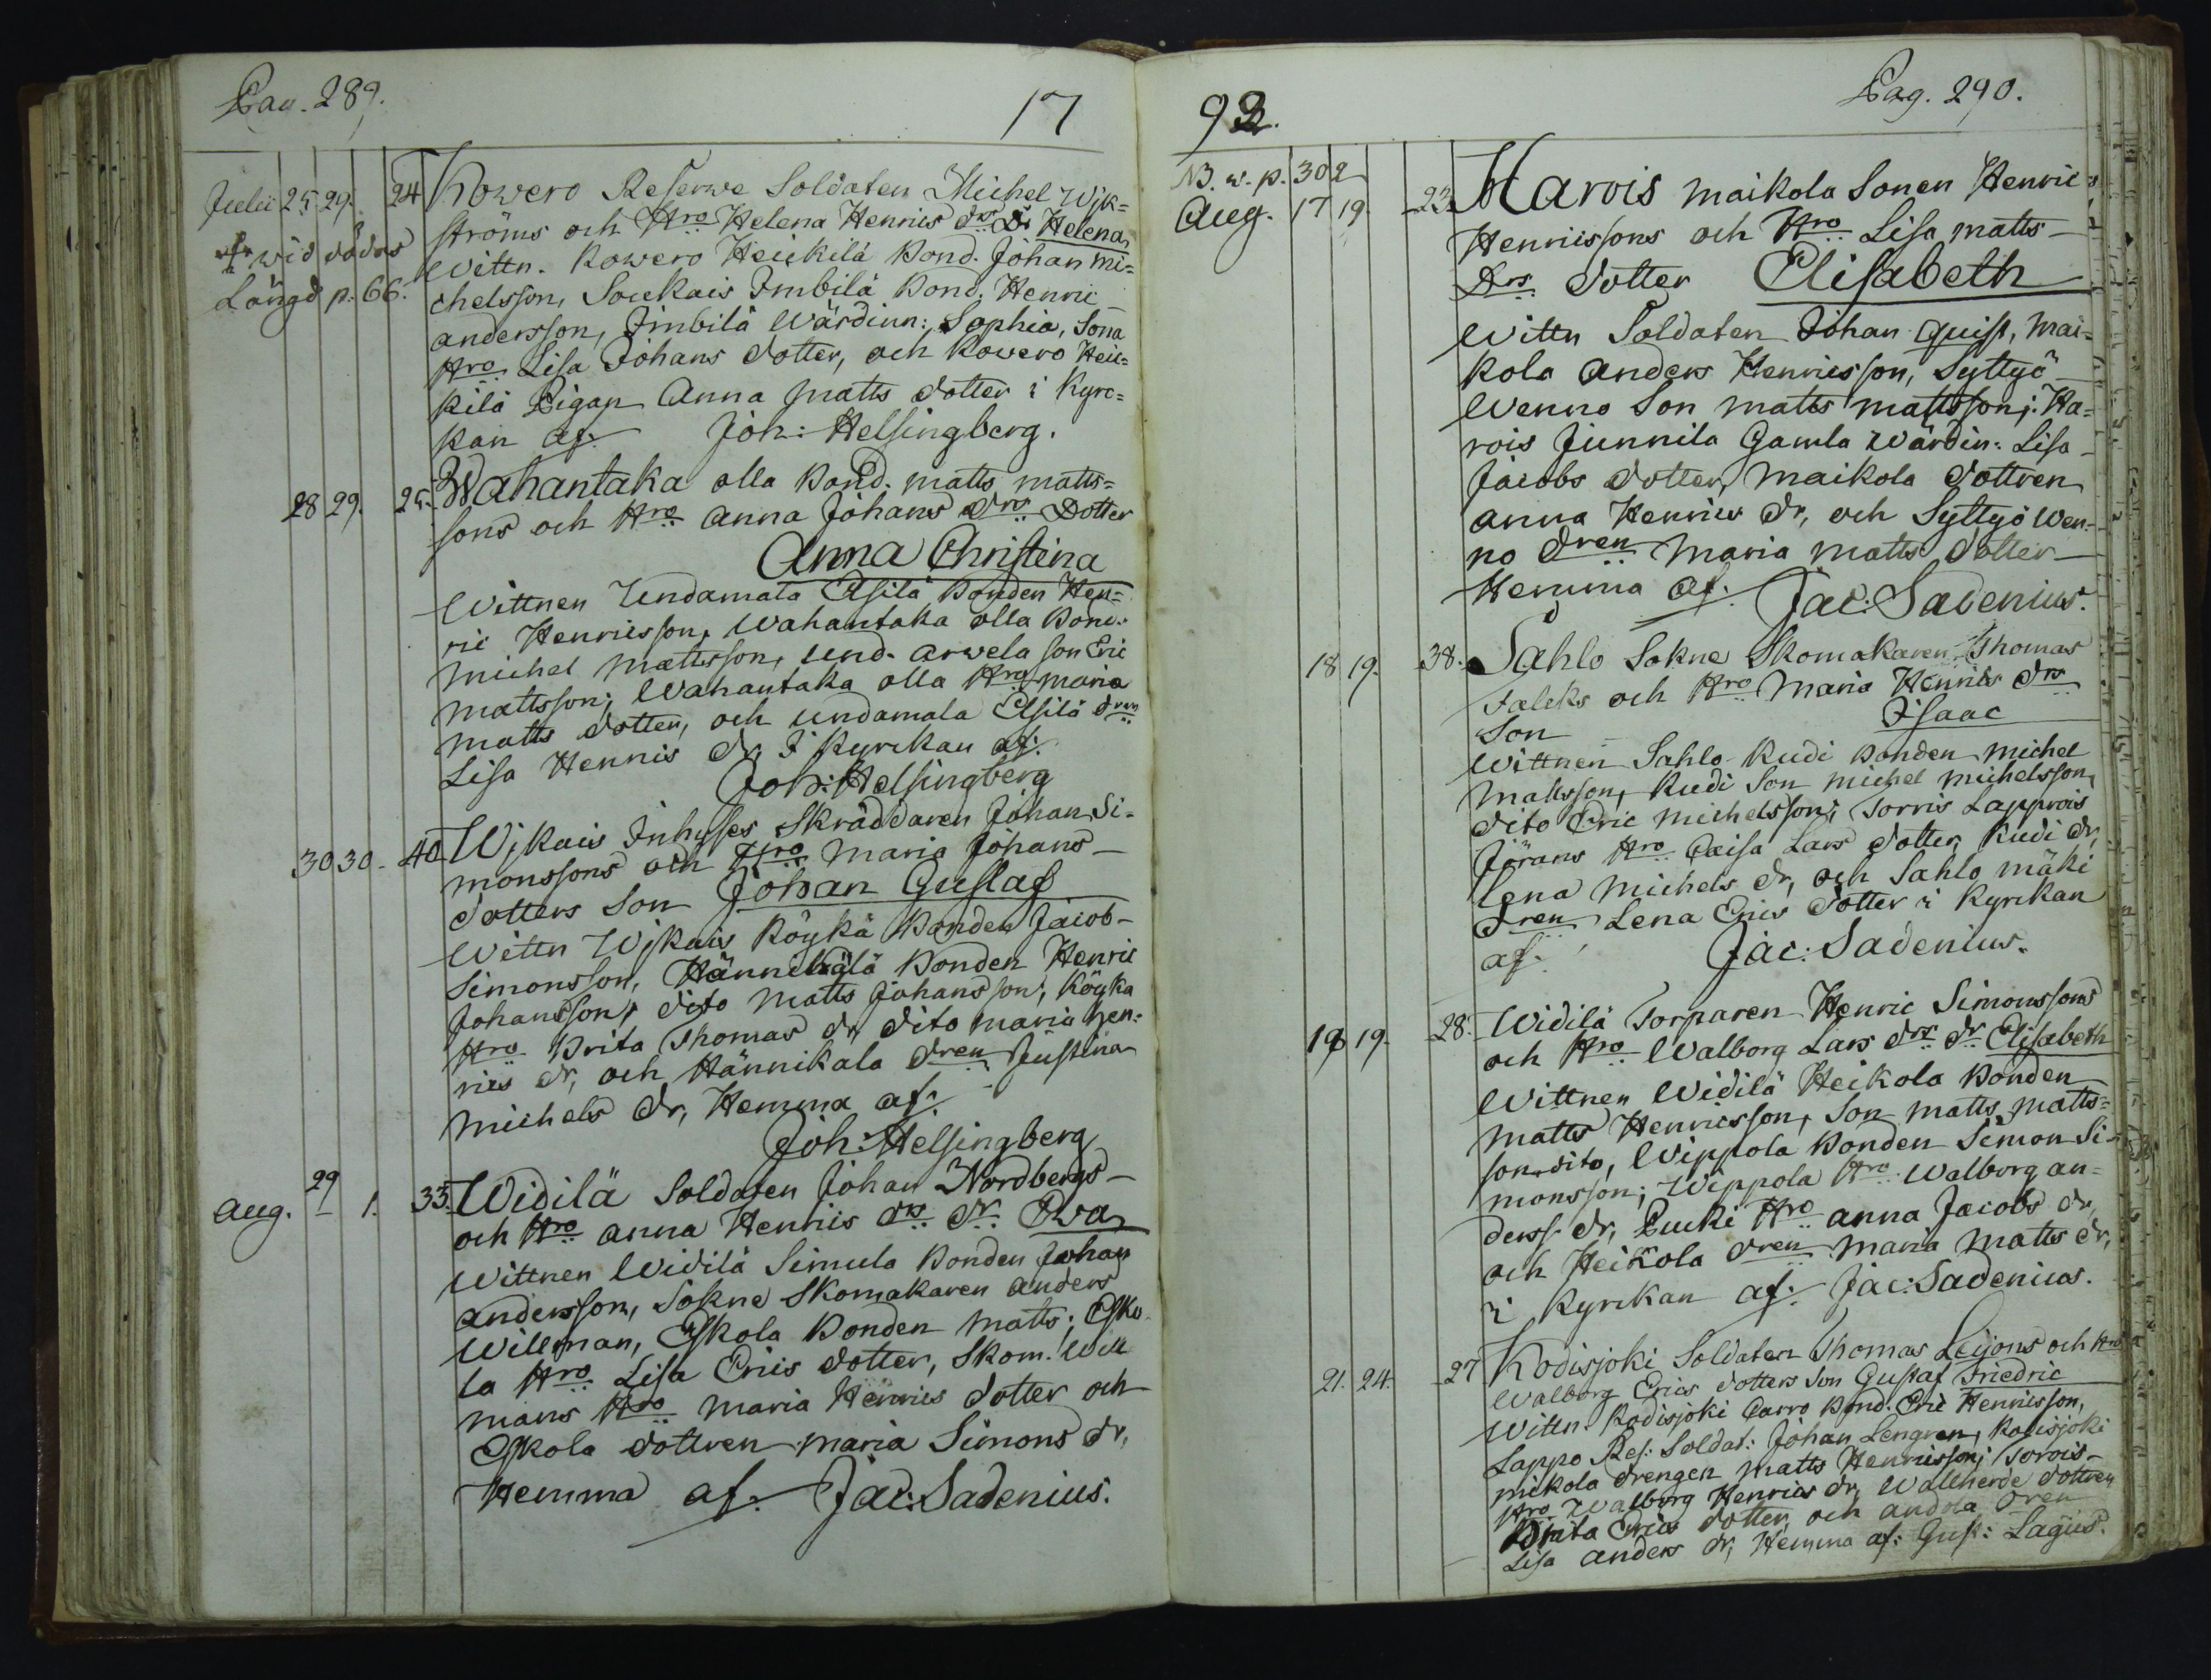 Pag. 289.
17
Julii 25 29. 24 Kowero Reserwe Soldaten Michel Wijk=
ströms och Hro Helena Henrics drs Dr Helena,
wid dödas
Längd p. 66.
Wittn. Kowero Heickilä Bond. Johan Mi=
chelsson, Soukais Imbilä Bond. Henric
andersson, Jmbilä Wärdinn: Sophia, Sona
Hro Lisa Johans dotter, och Kowero Heic=
kilä Pigan Anna Matts dotter i Kyrc=
kan af. Joh: Helsingberg.
28 29. 25. Wahantaka olla Bond. matts matts=
sons och Hro Anna Johans drs Dotter
Anna Christina
Wittnen Undamala Esilä Bonden Hen=
ric Henricsson, Wahantaka olla Bond.
Michel Mattsson, Und. arwela son Eric
Mattsson; Wahantaka olla Hro Maria
Matts dotter, och Undamala Esilä dren
Lisa Henrics dr, I Kyrckan af.
Joh: Helsingberg
30 30. 40 Wjkais Inhyses Skräddaren Johan Si=
monssons och Hro Maria Johans
dotters Son Johan Gustaf
Wittn Wjkais Köykä Bonden Jacob
Simonsson, Hännikälä Bonden Henric
Johansson, dito Matts Johansson; Köyka
Hro Brita Thomas dr, dito Maria Hen=
rics dr, och Hännikala dren Justina
Michels dr, Hemma af.
Joh: Helsingberg
Aug. 29 1. 33. Widilä Soldaten Johan Nordbergs
och Hro Anna Henrics drs dr Ewa
Wittnen Widilä Simula Bonden Johan
andersson, Sokne Skomakaren anders
Willman, Eskola Bonden Matts; Esko
la Hro Lisa Erics dotter, Skom. Will
mans Hro Maria Henrics dotter och
Eskola dottren Maria Simons dr,
Hemma af. Jac: Sadenius.
92.
Pag. 290.
NB. w. p. 302
Aug. 17 19. 23. Harois maikola Sonen Henric
Henricssons och Hro Lisa matts
Drs dotter Elisabeth
Wittn Soldaten Johan Quist, Mai=
kola Anders Henricsson, Syttyö
Wenno Son matts mattsson; Ha=
rois Junnila Gamla Wärdin: Lisa
Jacobs dotter, Maikola dottren
Anna Henrics dr, och Syttyö Wen=
no dren Maria matts dotter
Hemma af. Jac: Sadenius.
18 19. 38. Sahlo Sokne Skomakaren Thomas
Falcks och Hro Maria Henrics drs
Son Isaac
Wittnen Sahlo Kudi Bonden Michel
Mattsson, Kudi Son Michel Michelsson,
dito Eric Michelsson; Torris Lapprois
Jörans Hro Caisa Lars dotter, Kudi dr,
Lena Michels dr, och Sahlo mäki
dren Lena Erics dotter i Kyrckan
af. Jac: Sadenius.
19 19. 28. Widilä Torparen Henric Simonssons
och Hro Walborg Lars drs dr Elisabeth
Wittnen Widilä Heikola Bonden
Matts Henricsson, Son matts matts=
son dito, Wippola Bonden Simon Si=
monsson; Wippola Hro Walborg an=
derss. dr, Pucki Hro Anna Jacobs dr,
och Heikola dren Maria Matts dr,
i Kyrckan af. Jac: Sadenius.
21. 24. 27 Kodisjoki Soldaten Thomas Leijons och Hro
Walborg Erics dotters Son Gustaf Friedric
Wittn. Kodisjoki Carro Bond. Eric Henricsson,
Lappo Res. Soldat: Johan Lengren, Kodisjoki
mikola drengen Matts Henricsson; Torois
Hro Walborg Henrics dr, Wallherde dottren
Brita Erics dotter, och andola dren
Lisa anders dr, Hemma af: Gust: Lagus.